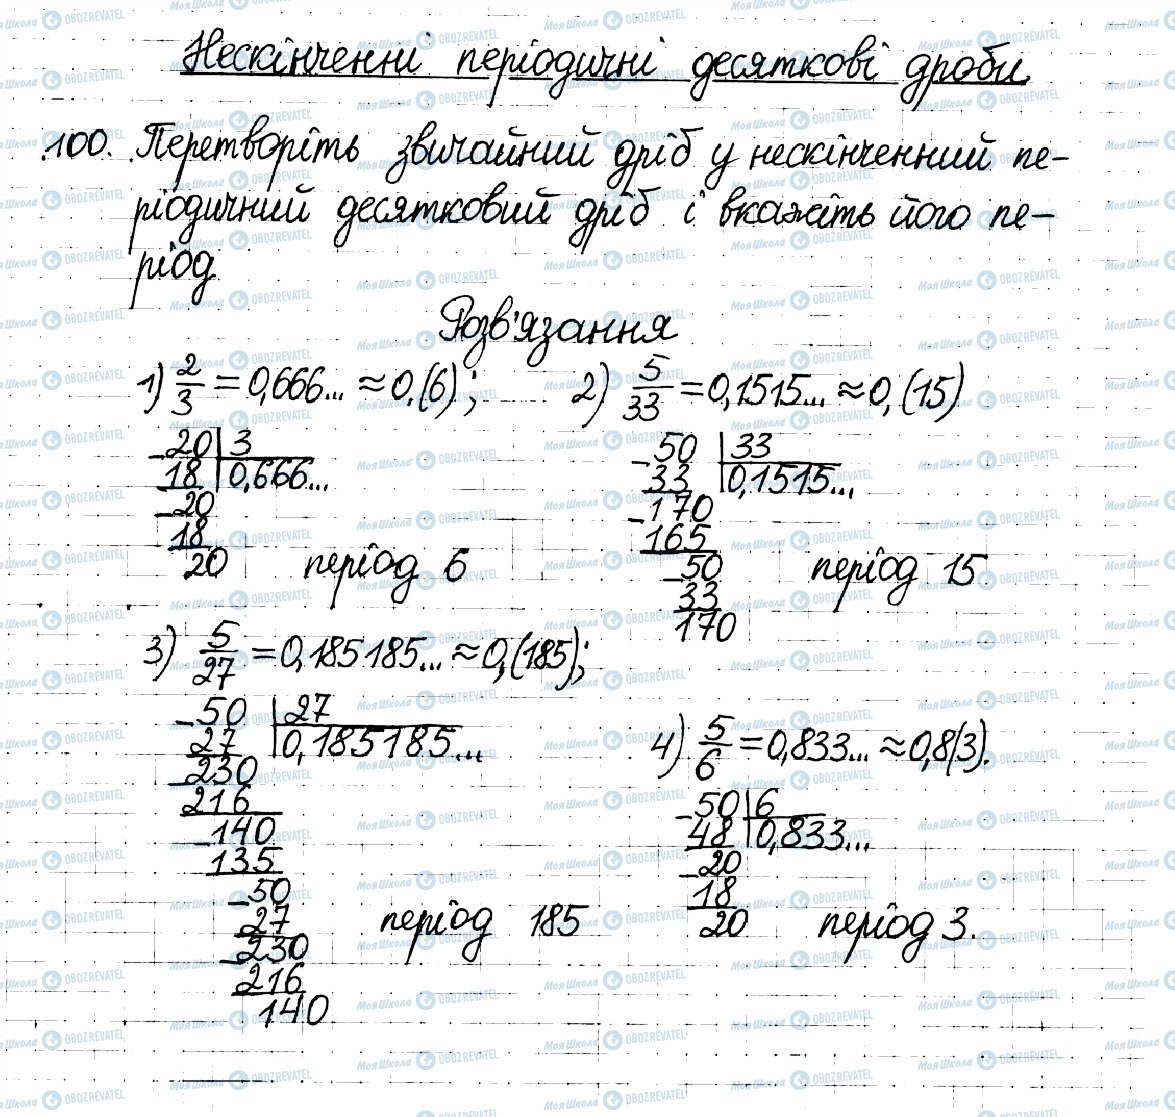 Нескінченні періодичні десяткові дроби
100. Перетворіть звичайний дріб у нескінченний пе-
ріодичний десятковий дріб і вкажіть його пе-
ріод
Розв'язання
1) 2/3 = 0,666... ≈ 0,(6);
20 | 3
18 | 0,666...
20
18
20
період 6
2) 5/33 = 0,1515... ≈ 0,(15)
50 | 33
33 | 0,1515...
170
165
50
33
170
період 15
3) 5/27 = 0,185185... ≈ 0,(185);
50 | 27
27 | 0,185185...
230
216
140
135
50
27
230
216
140
період 185
4) 5/6 = 0,833... ≈ 0,8(3).
50 | 6
48 | 0,833...
20
18
20
період 3.
Моя Школа OBOZREVATEL